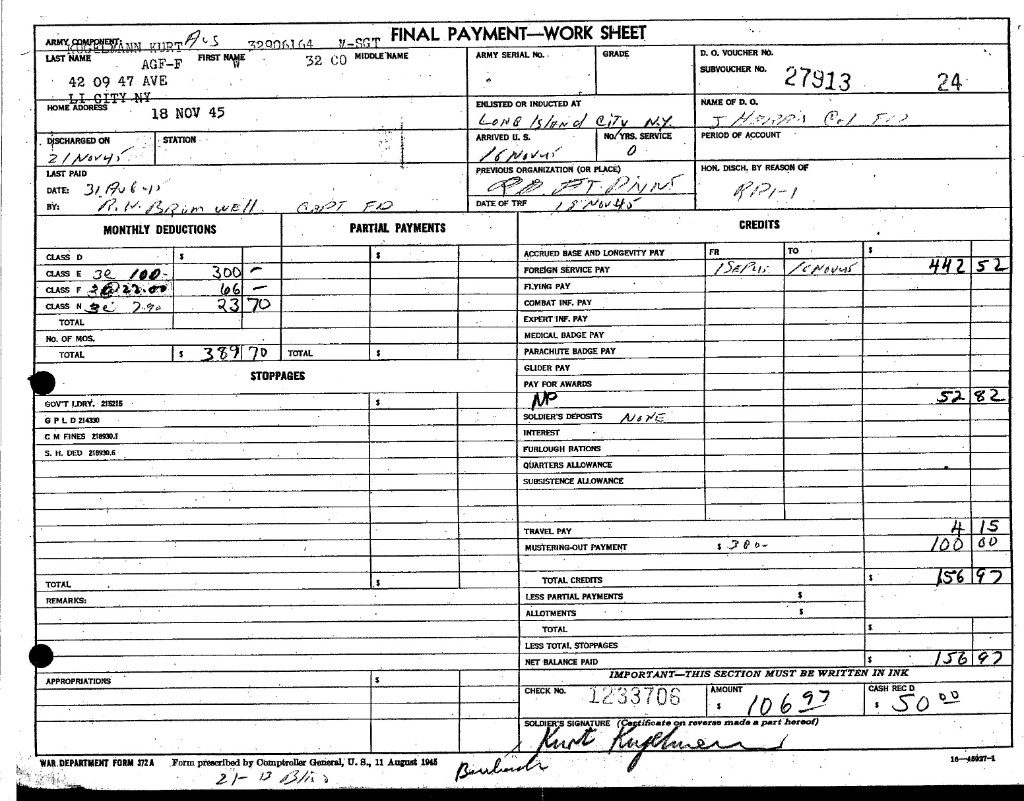 FINAL PAYMENT—WORK SHEET
ARMY COMPONENT: AUS
KUGELMANN KURT 32906164 M-SGT
LAST NAME FIRST NAME MIDDLE NAME
AGF-F W 32 CO
42 09 47 AVE
LI CITY NY
HOME ADDRESS 18 NOV 45
ARMY SERIAL NO. GRADE
D. O. VOUCHER NO.
SUBVOUCHER NO. 27913 24
ENLISTED OR INDUCTED AT
LONG ISLAND CITY N.Y.
NAME OF D. O.
DISCHARGED ON STATION
21 NOV 45
ARRIVED U. S. NO/YRS. SERVICE
16 NOV 45 0
PERIOD OF ACCOUNT
LAST PAID
DATE: 31 AUG 45
BY: R. N. BRIMWELL CAPT FD
PREVIOUS ORGANIZATION (OR PLACE)
DATE OF TRF 18 NOV 45
HON. DISCH. BY REASON OF
RR1-1
MONTHLY DEDUCTIONS PARTIAL PAYMENTS
CLASS D $ $
CLASS E 3@ 100- 300 —
CLASS F 3@22.00 66 —
CLASS N 3@ 7.90 23 70
TOTAL
NO. OF MOS.
TOTAL $ 389 70 TOTAL $
STOPPAGES
GOV'T LDRY. 215215 $
G P L D 214330
C M FINES 218930.1
S. H. DED 218930.6
TOTAL $
REMARKS:
APPROPRIATIONS $
CREDITS
ACCRUED BASE AND LONGEVITY PAY FR TO $
FOREIGN SERVICE PAY 1 SEP 45 16 NOV 45 442 52
FLYING PAY
COMBAT INF. PAY
EXPERT INF. PAY
MEDICAL BADGE PAY
PARACHUTE BADGE PAY
GLIDER PAY
PAY FOR AWARDS
NP 52 82
SOLDIER'S DEPOSITS NONE
INTEREST
FURLOUGH RATIONS
QUARTERS ALLOWANCE
SUBSISTENCE ALLOWANCE
TRAVEL PAY 4 15
MUSTERING-OUT PAYMENT $ 300- 100 00
TOTAL CREDITS $ 156 97
LESS PARTIAL PAYMENTS $
ALLOTMENTS $
TOTAL $
LESS TOTAL STOPPAGES
NET BALANCE PAID $ 156 97
IMPORTANT—THIS SECTION MUST BE WRITTEN IN INK
CHECK NO. 1233706 AMOUNT $ 106 97 CASH REC'D $ 50 00
SOLDIER'S SIGNATURE (Certificate on reverse made a part hereof)
Kurt Kugelmann
WAR DEPARTMENT FORM 372A Form prescribed by Comptroller General, U. S., 11 August 1945
16—45927-1